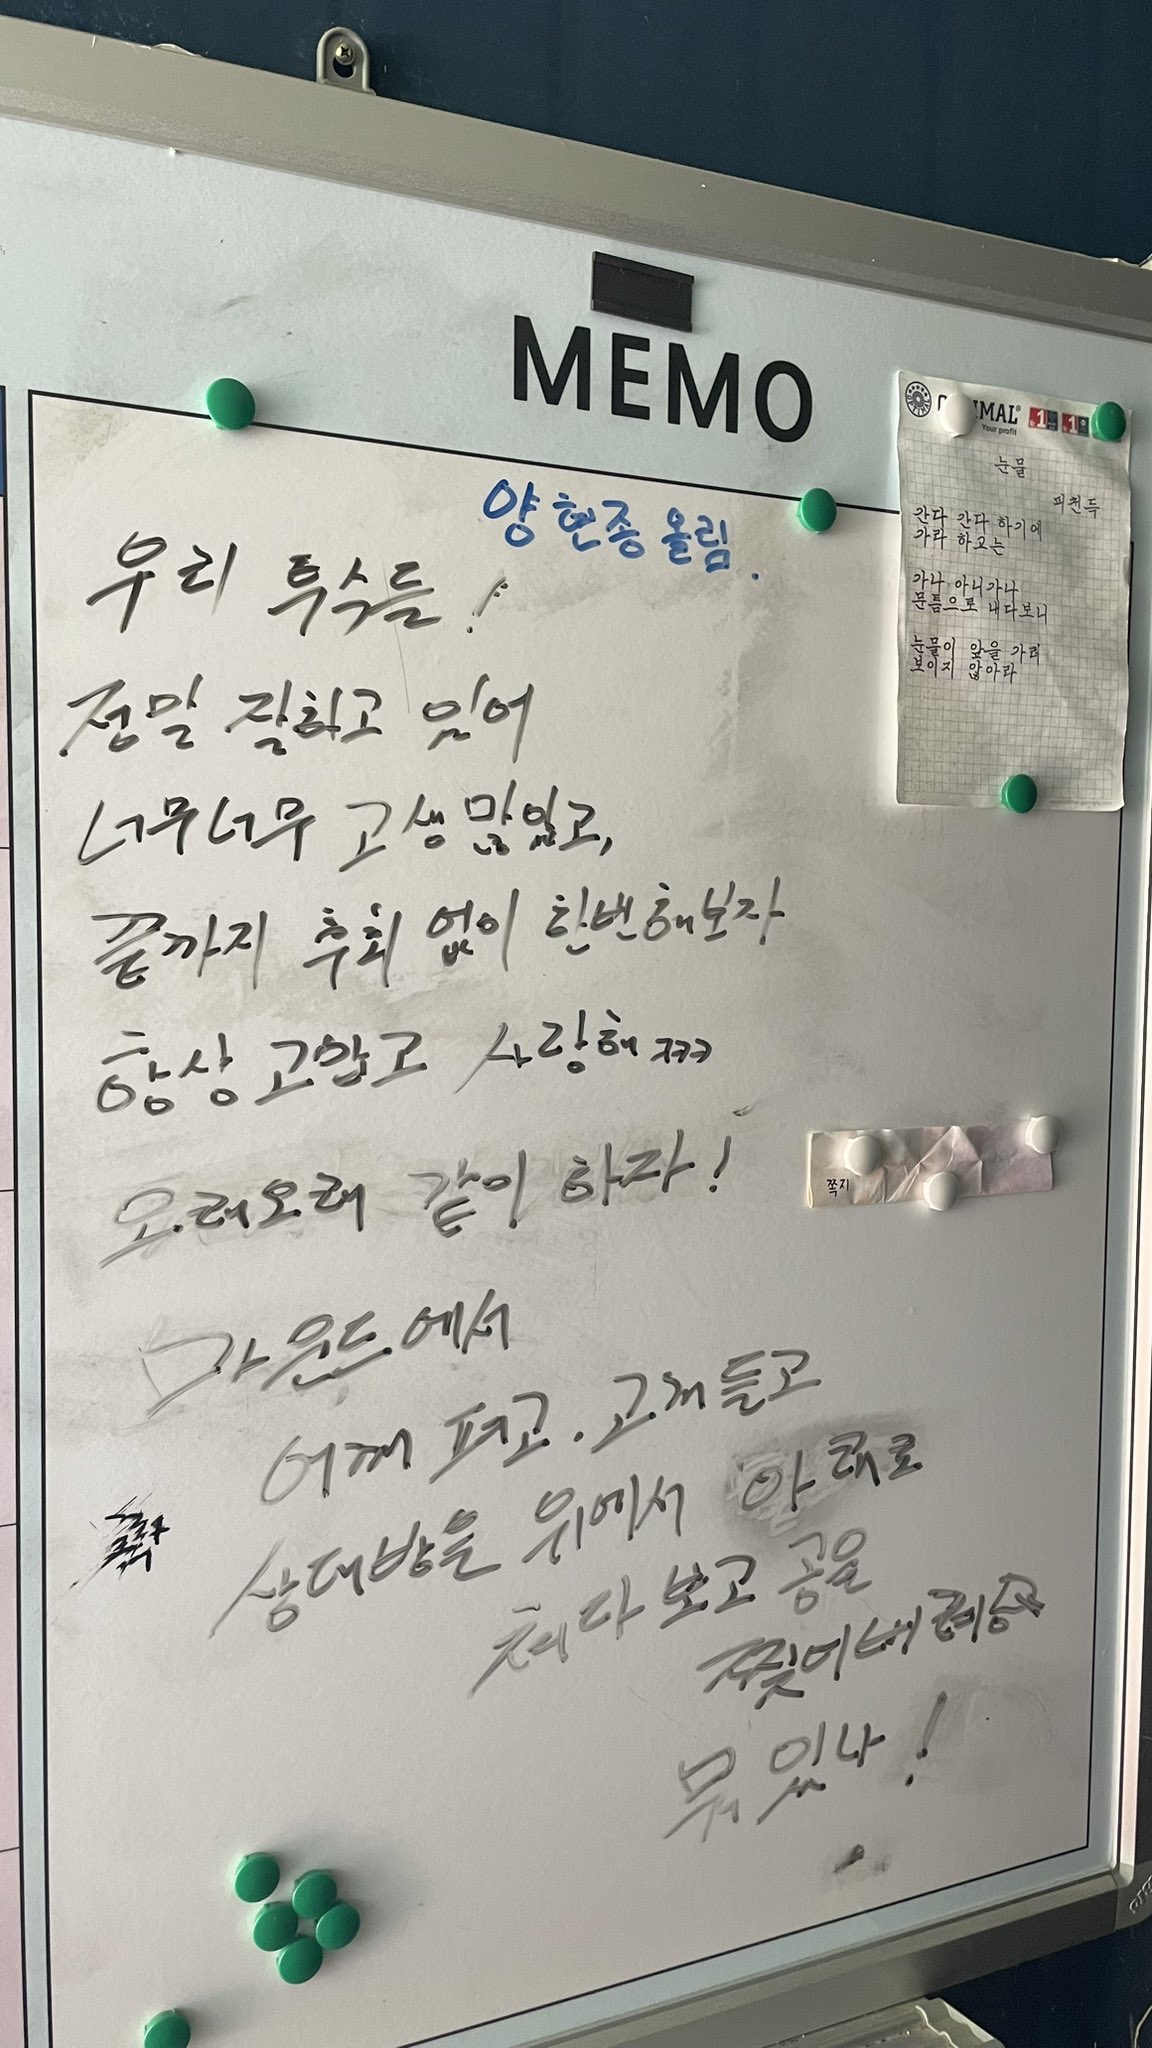 MEMO
양현종 올림.
우리 투수들!
정말 잘하고 있어
너무너무 고생 많았고,
끝까지 후회 없이 한번해보자
항상 고맙고 사랑해 ㅋㅋㅋ
오래오래 같이 하자!
마운드에서
어깨 펴고. 고개들고
상대방을 위에서 아래로
쳐다보고 공을
찢어버려
뭐 있나!
MAL®
Your profit
눈물
피천득
간다 간다 하기에
가라 하고는
가나 아니가나
문틈으로 내다보니
눈물이 앞을 가려
보이지 않아라
쪽지